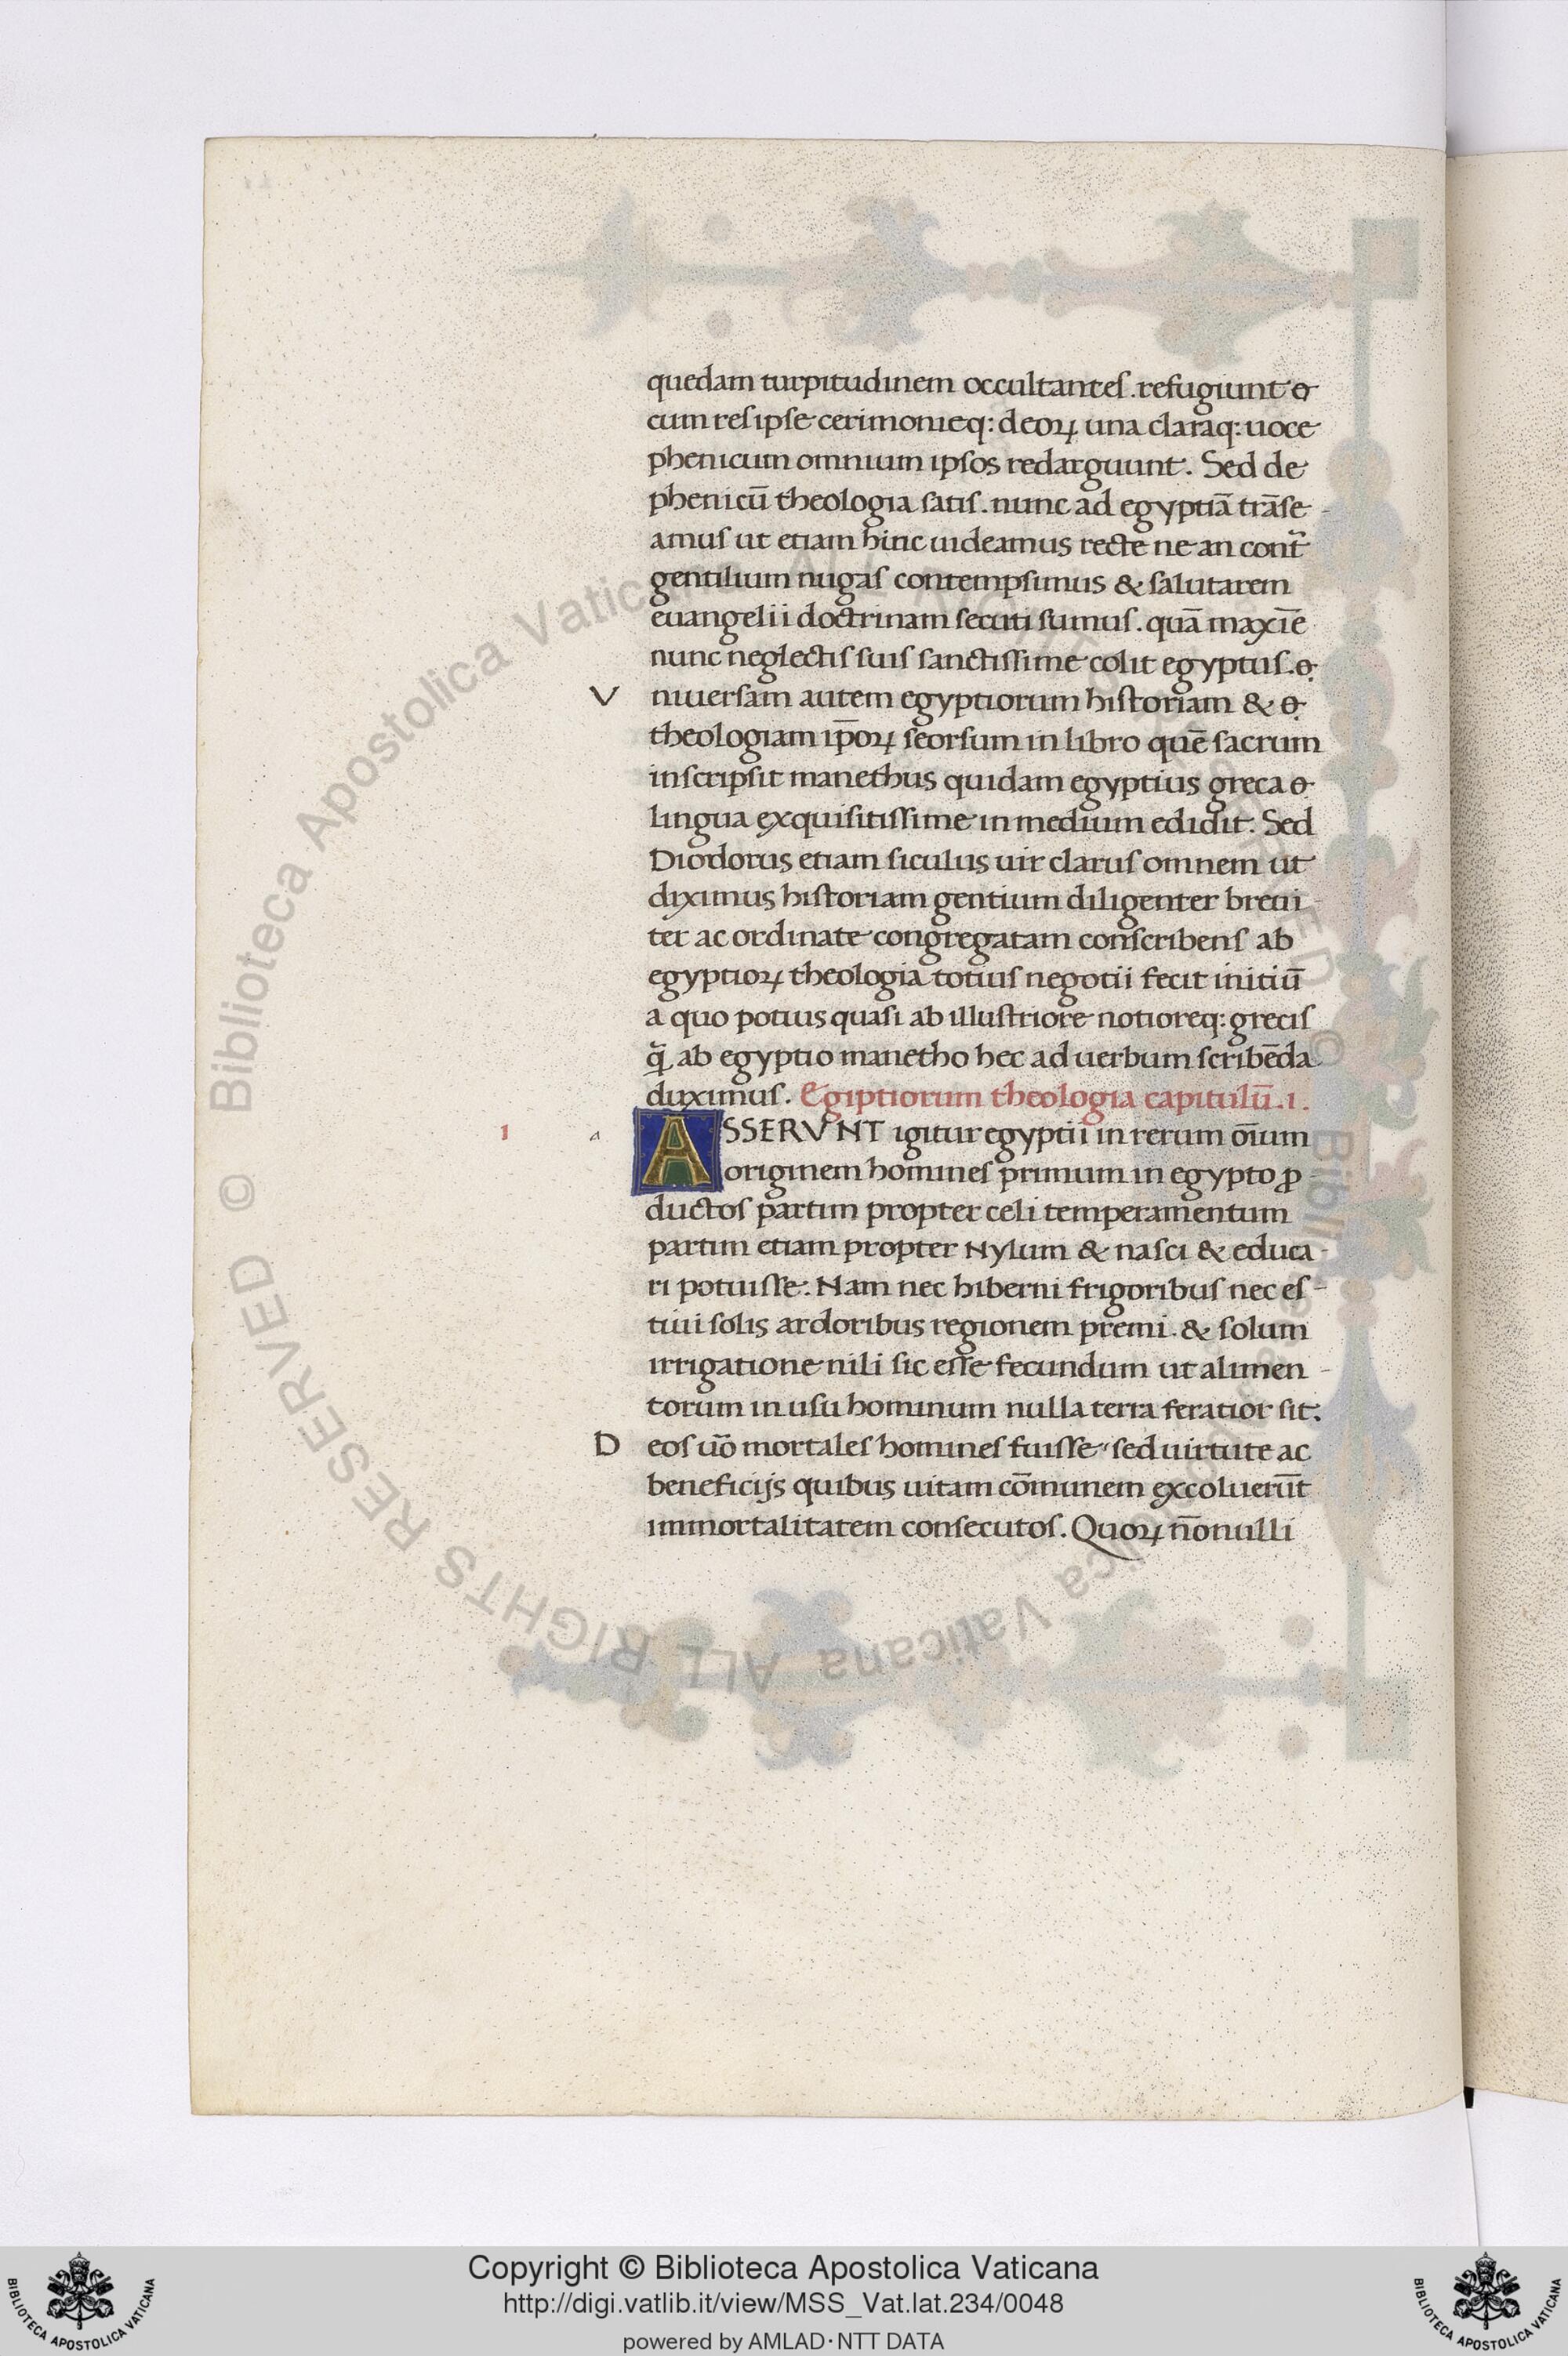 quedam turpitudinem occultantes. refugiunt
cum res ipse cerimonieq: deoꝝ una claraq: uoce
phenicum omnium ipsos redarguunt. Sed de
phenicū theologia satis. nunc ad egyptiā trāse-
amus ut etiam hinc uideamus recte ne an cont̃
gentilium nugas contempsimus & salutarem
euangelii doctrinam secuti sumus. quā maxiē
nunc neglectis suis sanctissime colit egyptus.
V niuersam autem egyptiorum historiam &
theologiam ip̄oꝝ seorsum in libro quē sacrum
inscripsit manethus quidam egyptius greca
lingua exquisitissime in medium edidit. Sed
Diodorus etiam siculus uir clarus omnem ut
diximus historiam gentium diligenter breui-
ter ac ordinate congregatam conscribens ab
egyptioꝝ theologia totius negotii fecit initiū
a quo potius quasi ab illustriore notioreq: grecis
q̃ ab egyptio manetho hec ad uerbum scribēda
duximus. Egiptiorum theologia capitulū.1.
1 a ASSERVNT igitur egyptii in rerum oīum
originem homines primum in egypto ꝓ-
ductos partim propter celi temperamentum
partim etiam propter Nylum & nasci & educa-
ri potuisse: Nam nec hiberni frigoribus nec es-
tiui solis ardoribus regionem premi. & solum
irrigatione nili sic esse fecundum ut alimen-
torum in usu hominum nulla terra feratior sit.
D eos uō mortales homines fuisse sed uirtute ac
beneficijs quibus uitam cōmunem excoluerūt
immortalitatem consecutos. Quoꝝ nōnulli
© Biblioteca Apostolica Vaticana ALL RIGHTS RESERVED
© Biblioteca Apostolica Vaticana ALL RIGHTS RESERVED
Copyright © Biblioteca Apostolica Vaticana
http://digi.vatlib.it/view/MSS_Vat.lat.234/0048
powered by AMLAD·NTT DATA
BIBLIOTECA APOSTOLICA VATICANA
BIBLIOTECA APOSTOLICA VATICANA